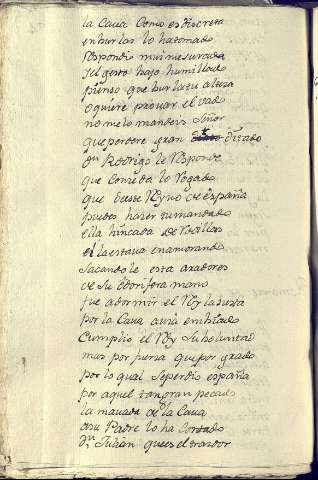 la Caua Como es discreta
en burlas lo ha tomado
Respondio mui mesurada
y el gesto bajo humillado
pienso que burla tu alteza
o quiere prouar el vado
no me lo mandeis Señor
que perdere gran ditado
dn Rodrigo le Responde
que conceda lo Rogado
que deste Reyno de españa
puedes hazer tu mandado
ella hincada de Rodillas
el la estaua enamorando
sacandole esta aradores
de su odorifera mano
fue a dormir el Rey la siesta
por la Caua auia embiado
Cumplio el Rey su boluntad
mas por fuerza que por grado
por lo qual se perdio españa
por aquel tan gran pecado
la mauada de la Caua
a su Padre lo ha Contado
dn Julian que es el traidor